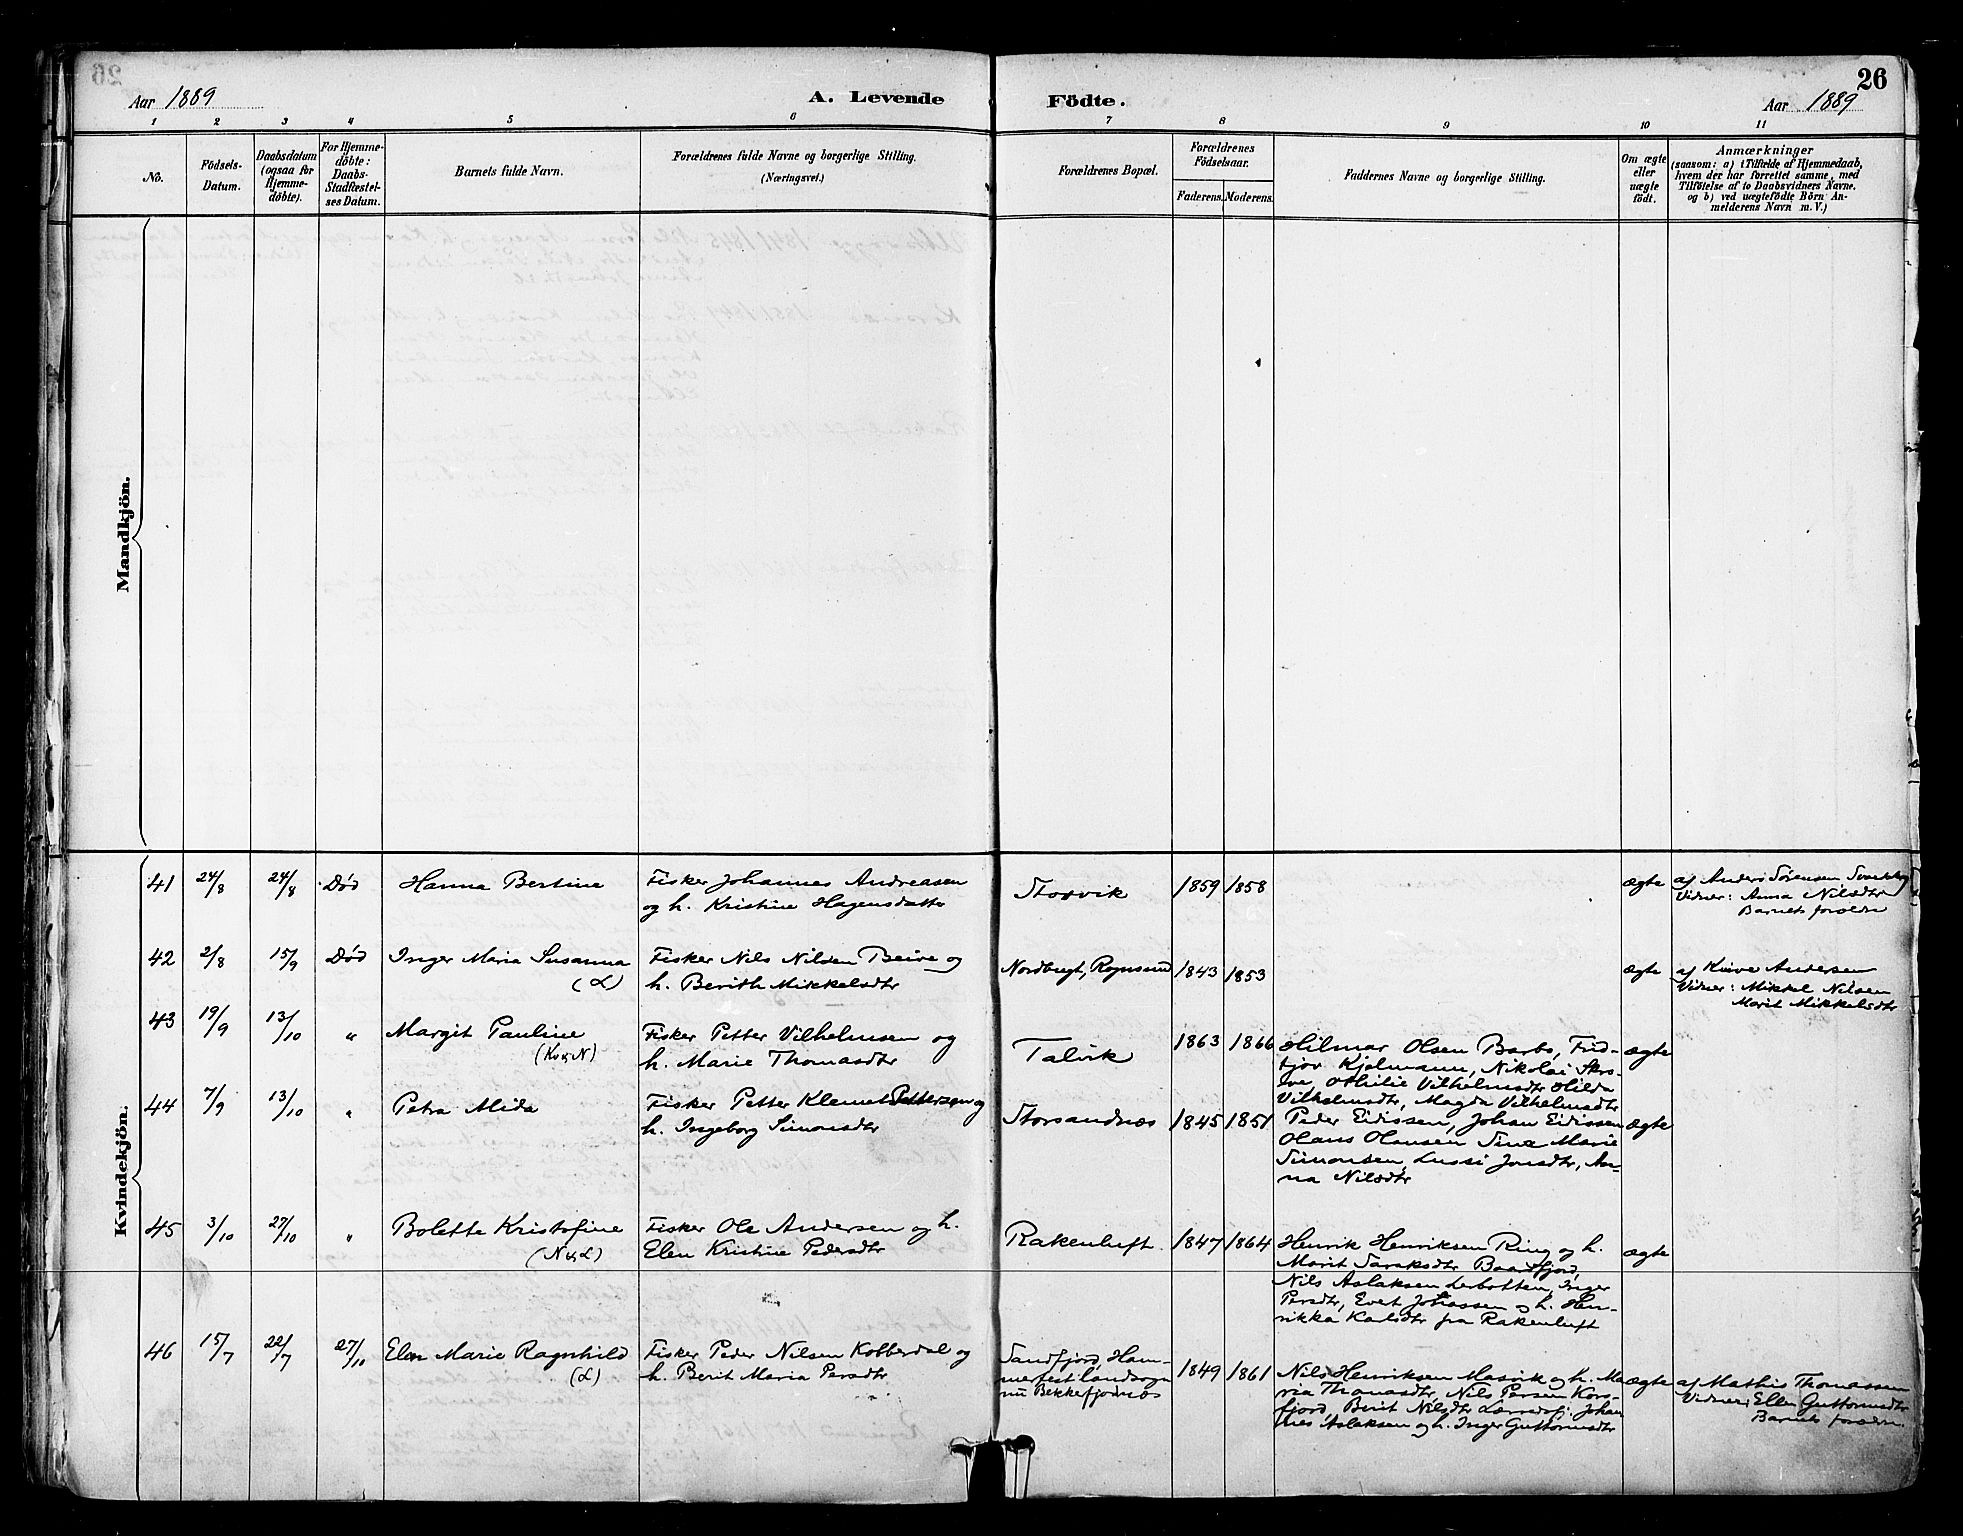 26
Aar 1889
A. Levende Födte.
Aar 1889
1 2 3 4 5 6 7 8 9 10 11
No.
Födsels-
Datum.
Daabsdatum
(ogsaa for
Hjemme-
döbte).
For Hjemme-
döbte:
Daabs-
Stadfæstel-
ses Datum.
Barnets fulde Navn.
Forældrenes fulde Navne og borgerlige Stilling.
(Næringsvei.)
Forældrenes Bopæl.
Forældrenes
Födselsaar.
Faderens. Moderens.
Faddernes Navne og borgerlige Stilling.
Om ægte
eller
uægte
født.
Anmærkninger
(saasom: a) i Tilfælde af Hjemmedaab,
hvem der har forrettet samme, med
Tilföielse af to Daabsvidners Navne.
og b) ved uægtefödte Börn An-
melderens Navn m. V.)
Mandkjön.
Kvindekjön.
41 24/8 24/8 Død Hanna Bertine
Fisker Johannes Andreasen
og h. Kristine Hagensdatter
Storvik 1859 1858
ægte
af Anders Sørensen
Vidner: Anna Nilsdtr
Barnets forældre
42 2/8 15/9 Død Inger Maria Susanna
(L)
Fisker Nils Nilsen Beive og
h. Berith Mikkelsdtr
Nordbugt, Rognsund 1843 1853
ægte
af Andersen
Vidner: Mikkel Nilsen
Marit Mikkelsdtr
43 19/9 13/10 " Margit Pauline
(Kv&N)
Fisker Petter Vilhelmsen og
h. Marie Thomasdtr
Talvik 1863 1866
Hilmar Olsen Barbo, Frid-
tjov Kjelmann, Nikolai
Othilie Vilhelmsdtr Hilda
Vilhelmsdtr, Magda Vilhelmsdtr
ægte
44 7/9 13/10 " Petra Alida
Fisker Petter Klemet Pettersen og
h. Ingeborg Simonsdtr
Storsandnæs 1845 1851
Peder Eidissen, Johan Eidissen
Olaus Olausen Sina Marie
Simonsen, Lussi Jonsdtr, An-
na Nilsdtr
ægte
45 3/10 27/10 " Bolette Kristofine
(N&L)
Fisker Ole Andersen og h.
Elen Kristine Pedersdtr
Rakenluft 1847 1864
Henrik Henriksen Ring og h.
Marit Sareksdtr Baardfjord,
Nils Aslaksen Lerbotten, Inger
Persdtr, Evert Johassen og h. Hen-
rikka Karlsdtr fra Rakenluft
ægte
46 15/7 22/7 27/10 Elen Marie Ragnhild
(L)
Fisker Peder Nilsen Kobberdal og
h. Berit Maria Persdtr
Sandfjord, Ham-
merfest landsogn
nu Bekkefjordnæs
1849 1861
Nils Henriksen Masvik og h. Ma-
ria Thomasdtr, Nils Persen Kors-
fjord, Berit Nilsdtr Johan-
nes Aslaksen og h. Inger Guttormsdtr
ægte
af Mathis Thomassen
Vidner: Ellen Guttormsdtr
Barnets forældre.